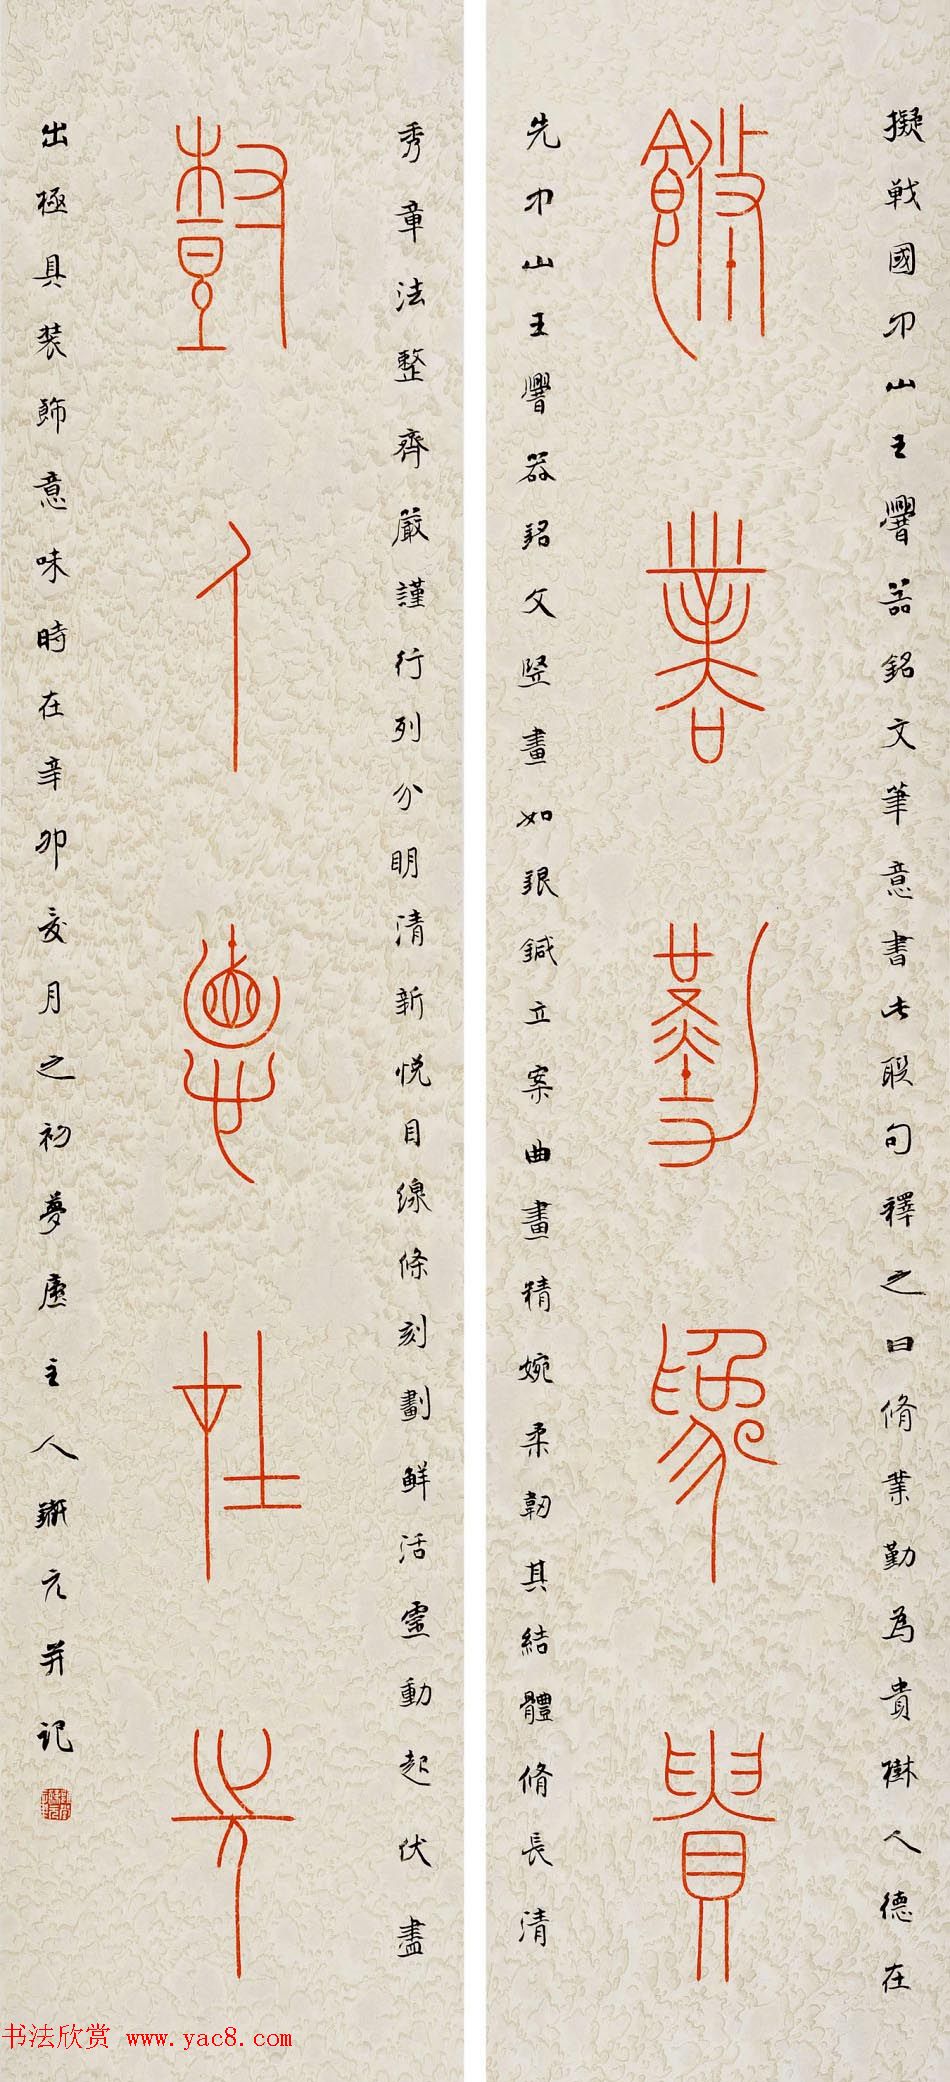 擬戰國中山王礜器銘文筆意書此聯句釋之曰脩業勤為貴樹人德在
脩業勤為貴
先中山王礜器銘文竪畫如銀鍼立案曲畫精婉柔韌其結體脩長清
秀章法整齊嚴謹行列分明清新悅目線條刻劃鮮活靈動起伏盡
樹人德在先
出極具裝飾意味時在辛卯麦月之初夢廬主人元并記
书法欣赏 www.yac8.com